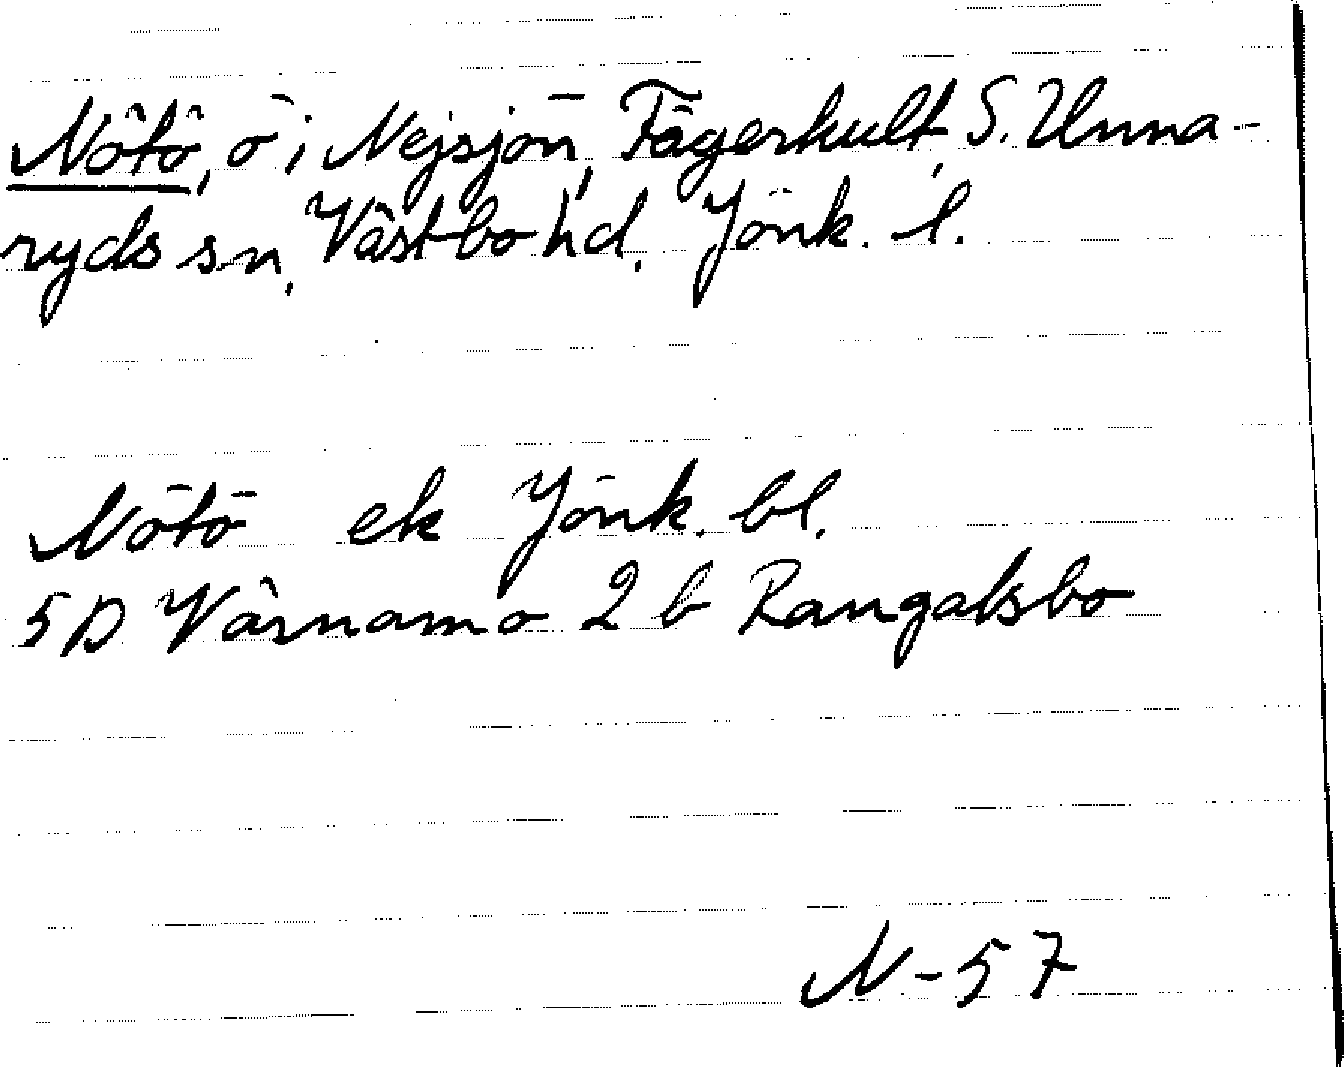 Nötö, ö i Nejsjön, Fägerhult, S. Unna-
ryds sn, Västbo hd. Jönk. l.
Nötö ek Jönk. bl.
5D Värnamo 2 b Rangalsbo
N-57